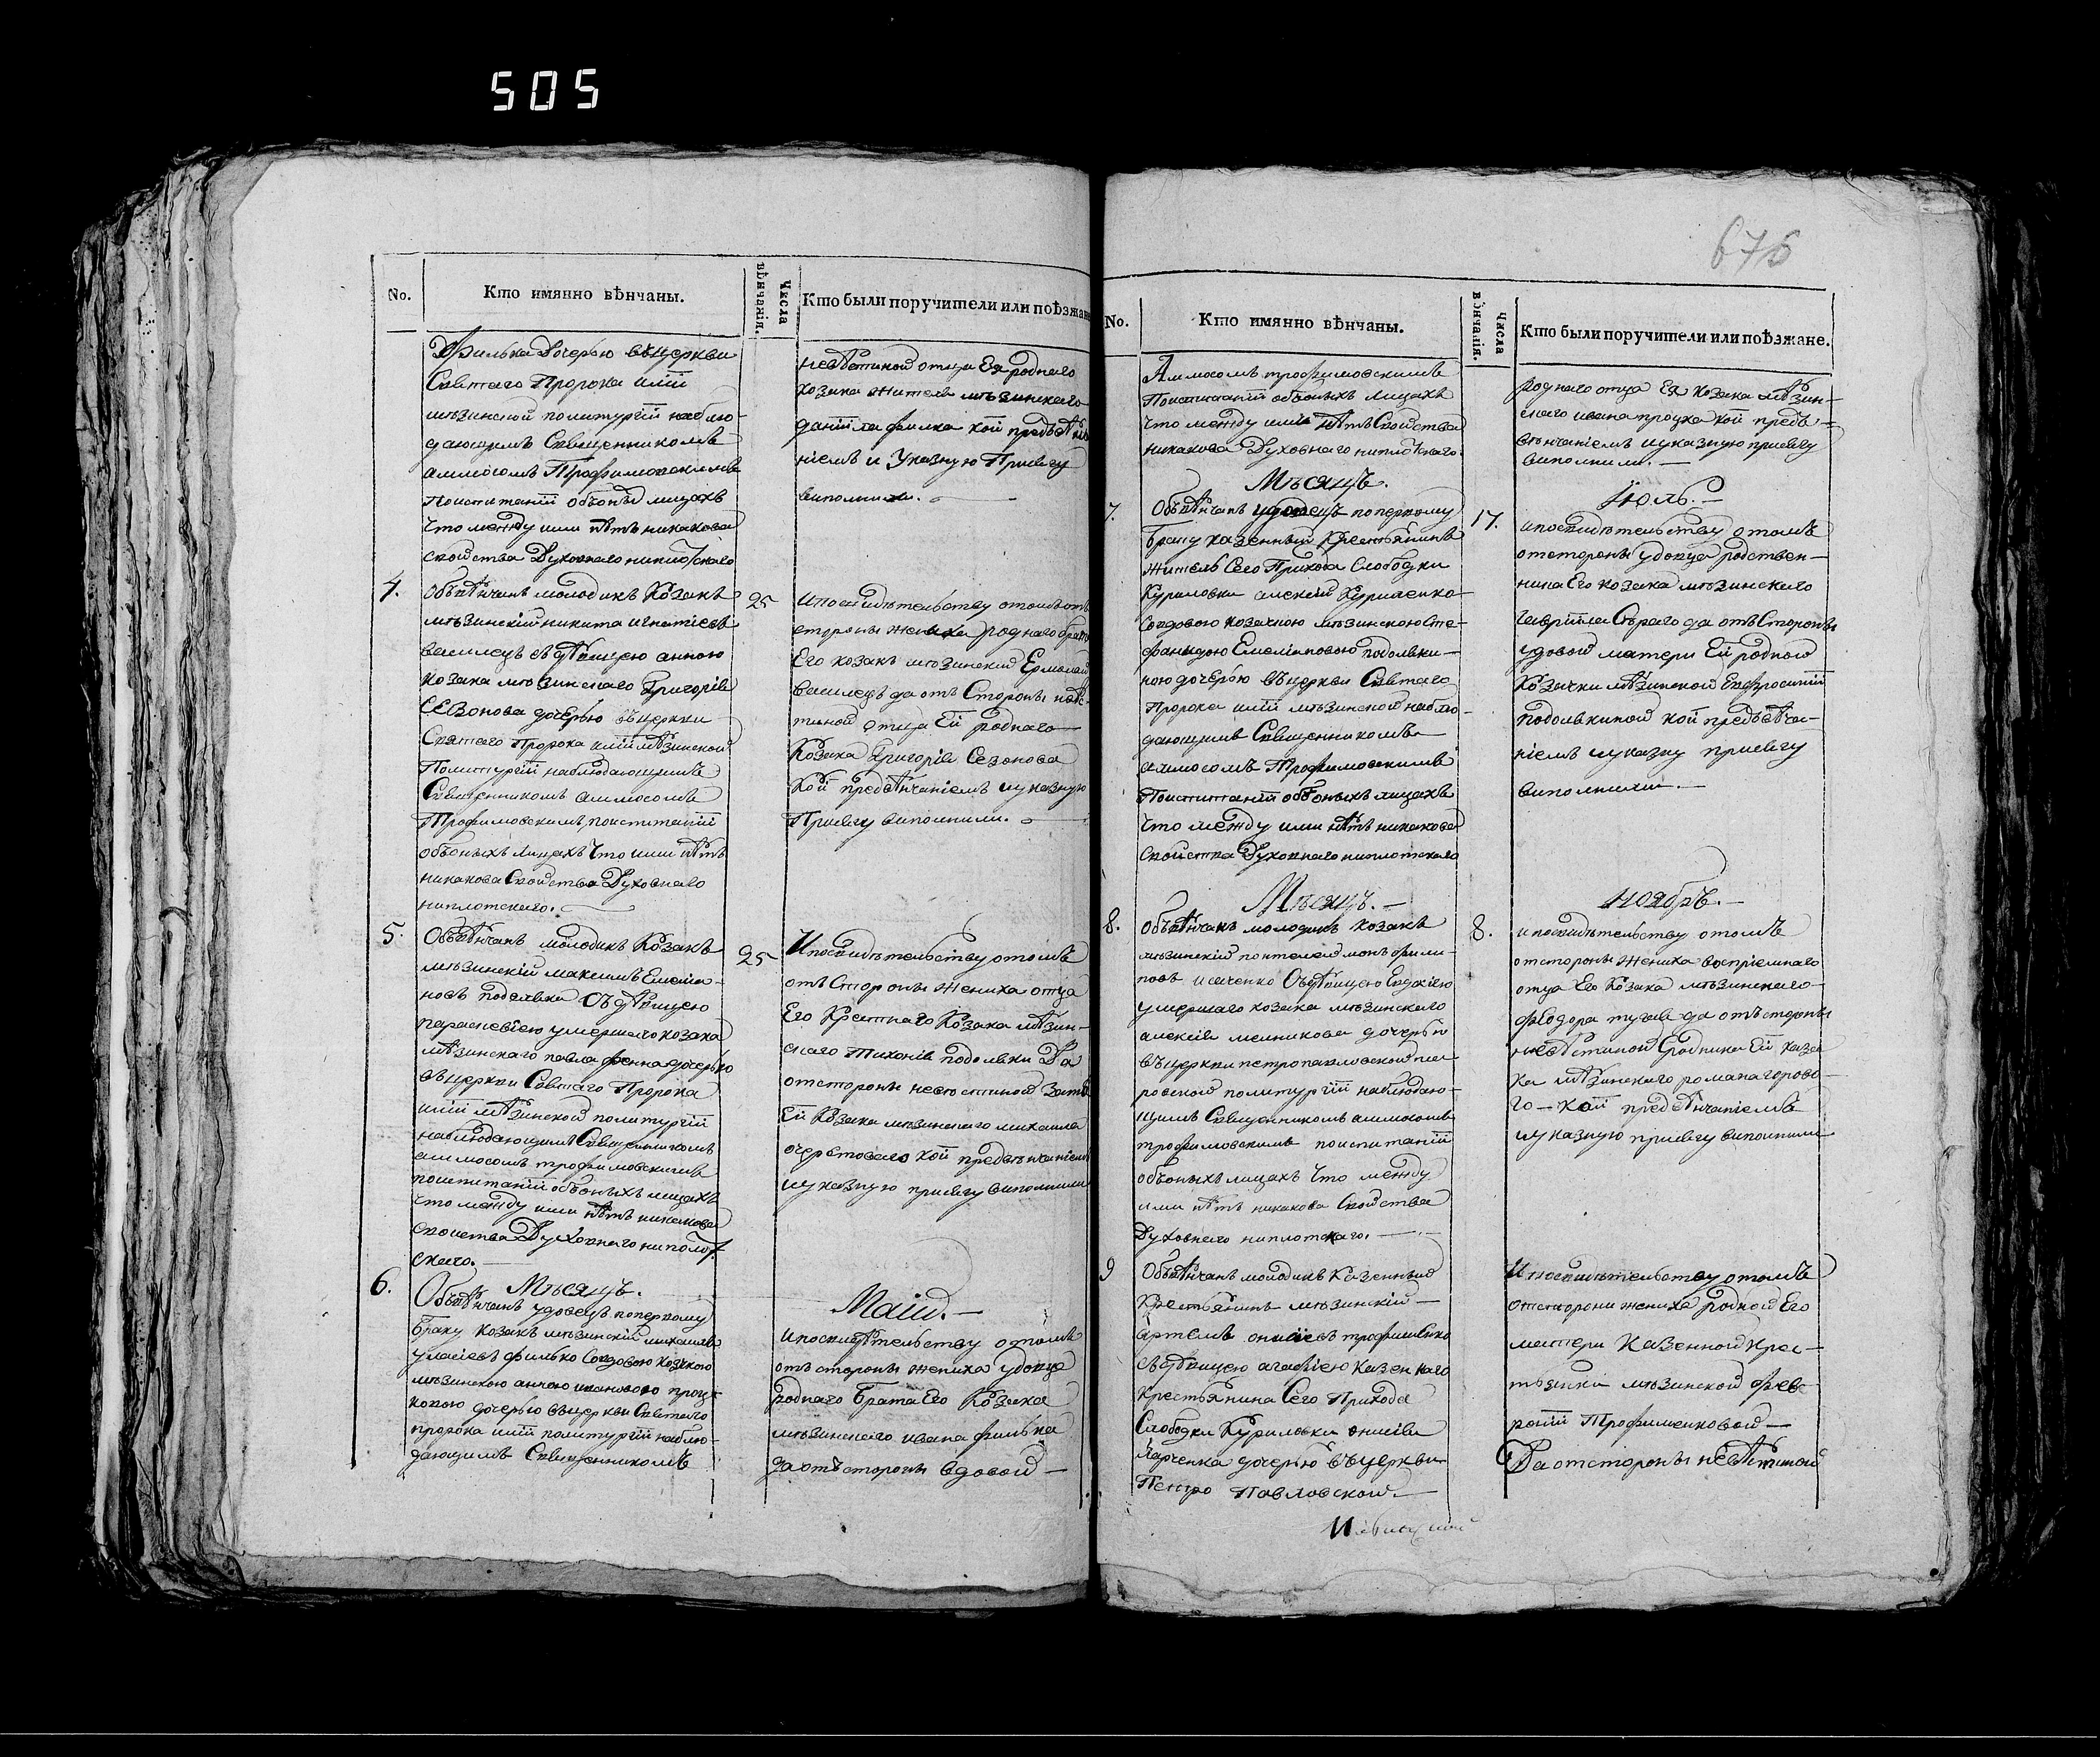 505
675
No.
Кто имянно вѣнчаны.
Числа вѣнчанія.
Кто были поручители или поѣзжане
Филька дочерью въ церкви
Святаго Пророка иліи
мѣзинской политургіи наблю-
дающимъ Священникомъ
аммосомъ Трофимовскимъ
что между ими нѣтъ никакова
свойства Духовнаго ниплотскаго
невѣстиной отца Ея роднаго
козака жителя мѣзинскаго
даніила филка кой предвѣнча
ніемъ и Указную Присягу
выполнили.
4.
Объвѣнчанъ молодикъ Козакъ
мѣзинскій никита игнатіевъ
василецъ съ дѣвицею анною
козака мѣзинскаго Григорія
Сезонова дочерью въ церкви
Святаго Пророка иліи мѣзинской
Политургіи наблюдающимъ
Священникомъ аммосомъ
Трофимовскимъ, поиспитаніи
обоныхъ лицахъ Что ими нѣтъ
никакова Свойства Духовнаго
ниплотскаго.
25
Ипосвидѣтельству отомъ отъ
стороны жениха роднаго брата
Его козакъ мѣзинский Ермолай
василецъ да отъ Стороны невѣ-
стиной отца Ей роднаго
Козака Григорія Сезонова
Кой предвѣнчаніемъ иуказную
Присягу виполнили.
5.
Объвѣнчанъ молодикъ Козакъ
мѣзинскій максимъ Емелиа-
новъ подолька съ дѣвицею
параскевіею умершаго козака
мѣзинскаго павла фенна дочерью
въ церкви Святаго Пророка
иліи мѣзинской политургіи
наблюдающимъ Священникомъ
аммосомъ трофимовскимъ
поиспитаніи обоныхъ лицахъ
что между ими нѣтъ никакова
свойства Духовнаго ниплот
скаго.
25
Ипосвидѣтельству отомъ
отъ Стороны жениха отца
Его Крестнаго Козака мѣзин-
скаго тихонія подольки Да
отстороны невѣстиной Зятя
Ей козака мѣзинскаго михаила
очеретоваго кой предвѣнчаніемъ
иуказную присягу виполнили
6.
Мѣсяцъ.
Маій.
Объвѣнчанъ удовецъ поперному
браку козакъ мѣзинскій михаилъ
уласіевъ филько Совдовою козачкою
мѣзинскою анною ивановою проць
ковою дочерью въ церкви Святаго
пророка иліи политургіи наблю-
дающимъ Священникомъ
ипосвидѣтельству отомъ
отъ стороны жениха удовца
роднаго брата Его Козака
мѣзинскаго ивана филька
да отъ стороны вдовой
No.
Кто имянно вѣнчаны.
Числа вѣнчанія.
Кто были поручители или поѣзжане.
Аммосомъ трофимовскимъ
Поиспитаніи обоныхъ лицахъ
что между ими нѣтъ Свойства
никакова Духовнаго ниплотскаго.
роднаго отца Ея козака мѣзин-
скаго ивана процка кой предъ-
вѣнчаніемъ иуказную присягу
виполнили.
Мѣсяцъ.
Іюль.
7.
Объвѣнчанъ удовецъ поперному
браку казенный крестьянинъ
житель Сего Прихода Слободки
Куриловки алексій Куриленко
Совдовою козачкою мѣзинскою Сте-
фанидою Емеліановою подольки-
ною дочерою въ церкви Святаго
Пророка иліи мѣзинской наблю-
дающимъ Священникомъ
аммосомъ Трофимовскимъ
Поиспитаніи обоныхъ лицахъ
Что между ими нѣтъ никакова
Свойства Духовнаго ниплотскаго
17.
ипосвидѣтельству отомъ
отстороны удовца родствен-
ника Его козака мѣзинскаго
Гавріила Сѣраго да отъ Стороны
удовой матери Ей родной
Козачки мѣзинской Евфросиніи
подолькиной кой предвѣнча-
ніемъ иуказну присягу
виполнили.
Мѣсяцъ.
Ноябрь.
8.
Объвѣнчанъ молодикъ козакъ
мѣзинскій пантелеймонъ фили-
повъ исаченко Съдѣвицею Евдокіею
умершаго козака мѣзинскаго
алексія мелникова дочерью
въ церкви петропавловской
ровской политургіи наблюдаю-
щимъ Священникомъ аммосомъ
трофимовскимъ поиспитаніи
обоныхъ лицахъ что между
ими нѣтъ никакова Свойства
Духовнаго ниплотскаго.
8.
ипосвидѣтельству отомъ
отстороны жениха воспріемнаго
отца Его Козака мѣзинскаго
феодора тугая да отъ стороны
невѣстиной Сродника Ей каза
ка мѣзинскаго романа горово-
го кой предвѣнчаніемъ
иуказную присягу виполнили
9
Объвѣнчанъ молодикъ Казенный
Крестьянинъ мѣзинскій
артемъ онисіевъ трофименко
съдѣвицею агафіею казеннаго
крестьянина Сего Прихода
Слободки Куриловки онисія
Харченка дочерью въ церкви
Петро Павловской
Ипосвидѣтельству отомъ
отстороны жениха родной Его
матери Казенной Крес-
тьянки мѣзинской фев-
роніи Трофименковой
Да отстороны невѣстиной